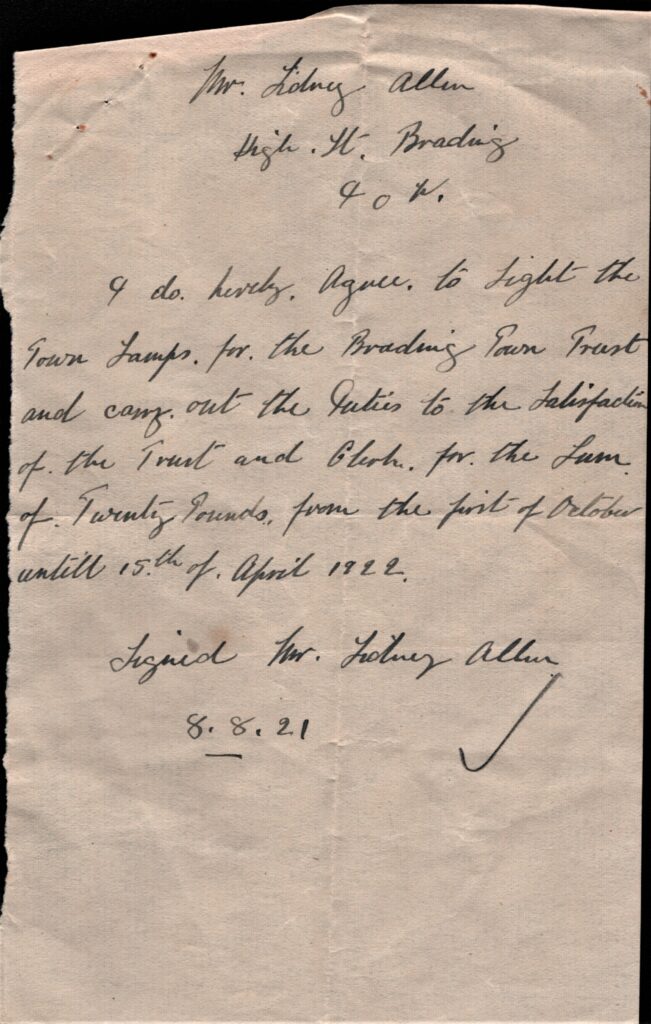 Mr. Sidney Allen
High. St. Brading
I o W.
I do. herely. Agree. to Light the
Town Lamps. for. the Brading Town Trust
and carry. out the Duties to the Satisfaction
of. the Trust and Clerk. for. the Sum.
of. Twenty Pounds., from the first of October
untill 15.th of. April 1922.
Signed Mr. Sidney Allen
8. 8. 21